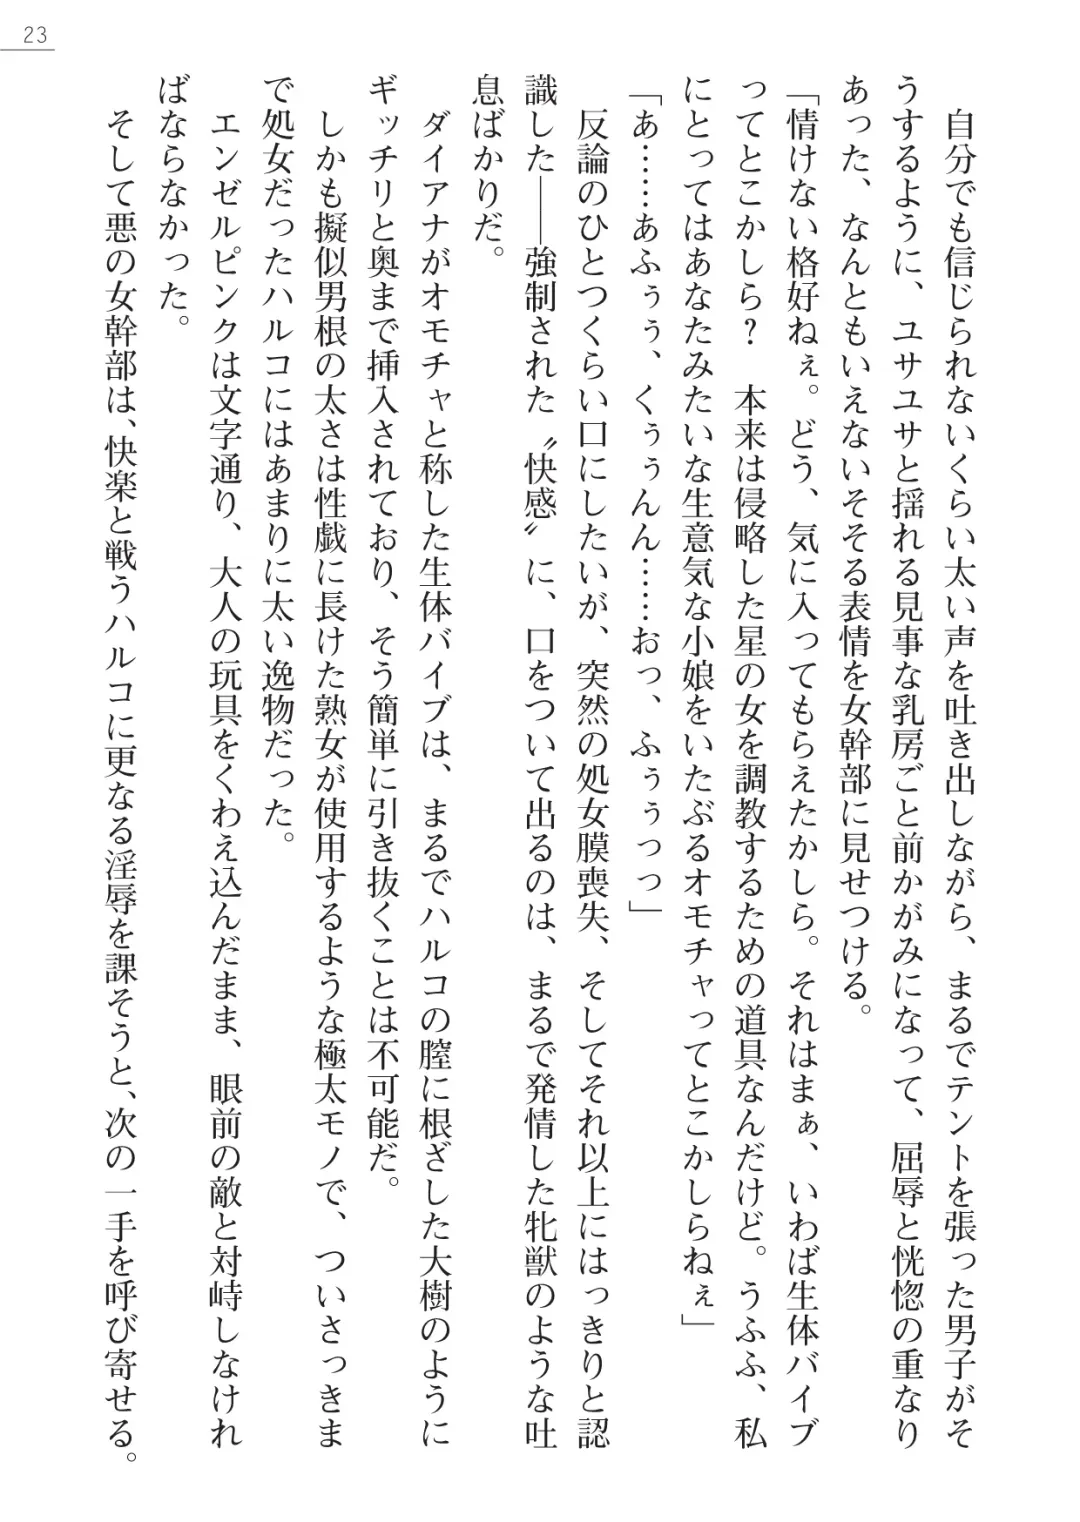 23
自分でも信じられないくらい太い声を吐き出しながら、まるでテントを張った男子がそ
うするように、ユサユサと揺れる見事な乳房ごと前かがみになって、屈辱と恍惚の重なり
あった、なんともいえないそそる表情を女幹部に見せつける。
「情けない格好ねぇ。どう、気に入ってもらえたかしら。それはまぁ、いわば生体バイブ
ってとこかしら？　本来は侵略した星の女を調教するための道具なんだけど。うふふ、私
にとってはあなたみたいな生意気な小娘をいたぶるオモチャってとこかしらねぇ」
「あ……あふぅぅ、くぅぅんん……おっ、ふぅぅっっ」
反論のひとつくらい口にしたいが、突然の処女膜喪失、そしてそれ以上にはっきりと認
識した――強制された〝快感〟に、口をついて出るのは、まるで発情した牝獣のような吐
息ばかりだ。
ダイアナがオモチャと称した生体バイブは、まるでハルコの膣に根ざした大樹のように
ギッチリと奥まで挿入されており、そう簡単に引き抜くことは不可能だ。
しかも擬似男根の太さは性戯に長けた熟女が使用するような極太モノで、ついさっきま
で処女だったハルコにはあまりに太い逸物だった。
エンゼルピンクは文字通り、大人の玩具をくわえ込んだまま、眼前の敵と対峙しなけれ
ばならなかった。
そして悪の女幹部は、快楽と戦うハルコに更なる淫辱を課そうと、次の一手を呼び寄せる。